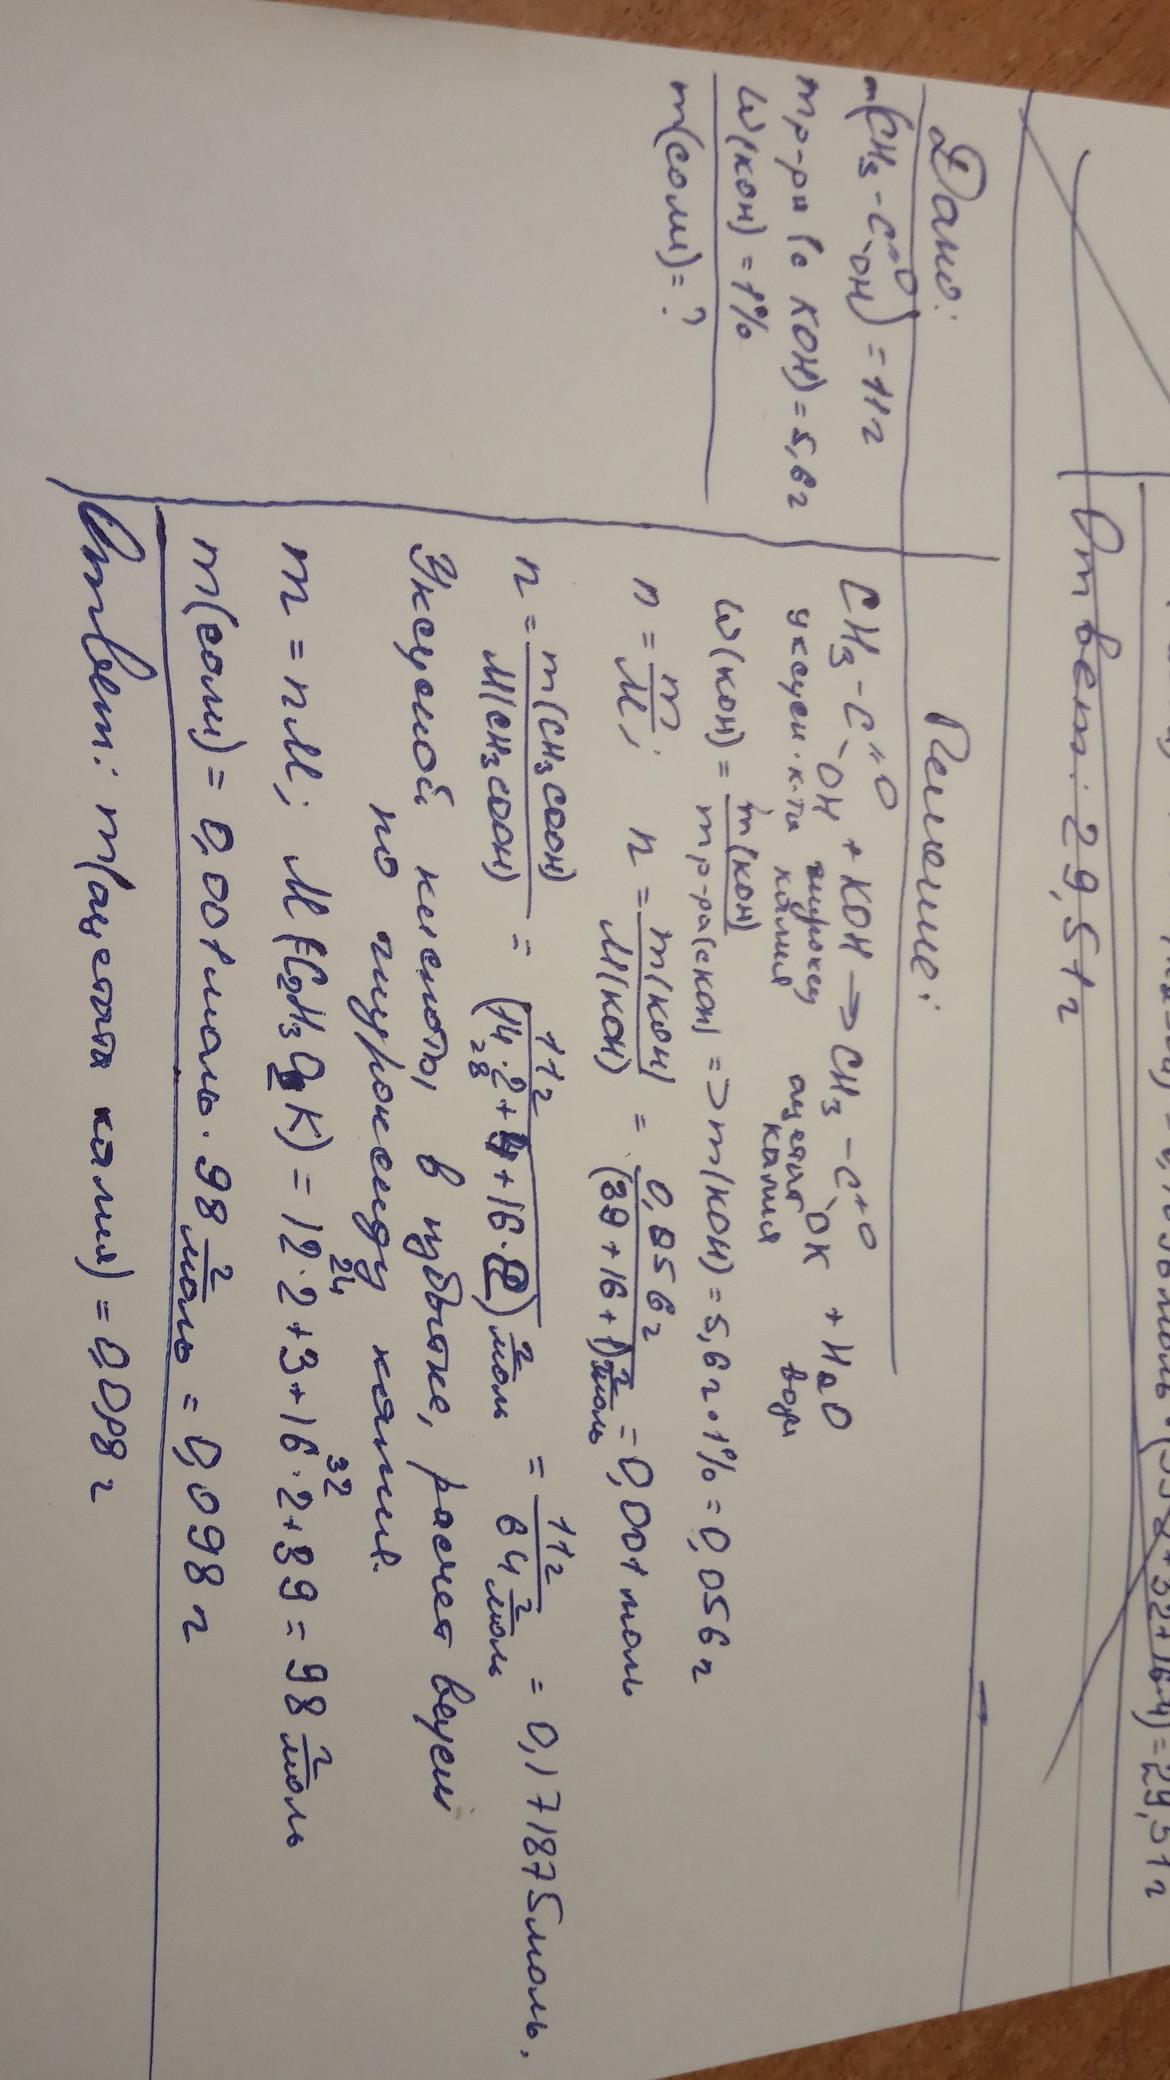 =29,51г
Ответ: 29,51г
Дано:
m(CH3-C=O-OH) = 11г
mр-ра (с KOH) = 5,6г
W(KOH) = 1%
m(соли) = ?
Решение:
CH3-C=O-OH + KOH → CH3-C=O-OK + H2O
уксусн. к-та гидроксид калия ацетат калия вода
W(KOH) = m(KOH) / mр-ра(с KOH) => m(KOH) = 5,6г · 1% = 0,056г
n = m/M; n = m(KOH)/M(KOH) = 0,056г / (39+16+1) г/моль = 0,001 моль
n = m(CH3COOH)/M(CH3COOH) = 11г / (14·2+4+16·2) г/моль = 11г / 64 г/моль = 0,171875 моль.
28
Уксусной кислоты в избытке, расчет ведем
по гидроксиду калия.
24 32
m = nM; M(C2H3O2K) = 12·2+3+16·2+39 = 98 г/моль
m(соли) = 0,001 моль · 98 г/моль = 0,098 г
Ответ: m(ацетата калия) = 0,098 г